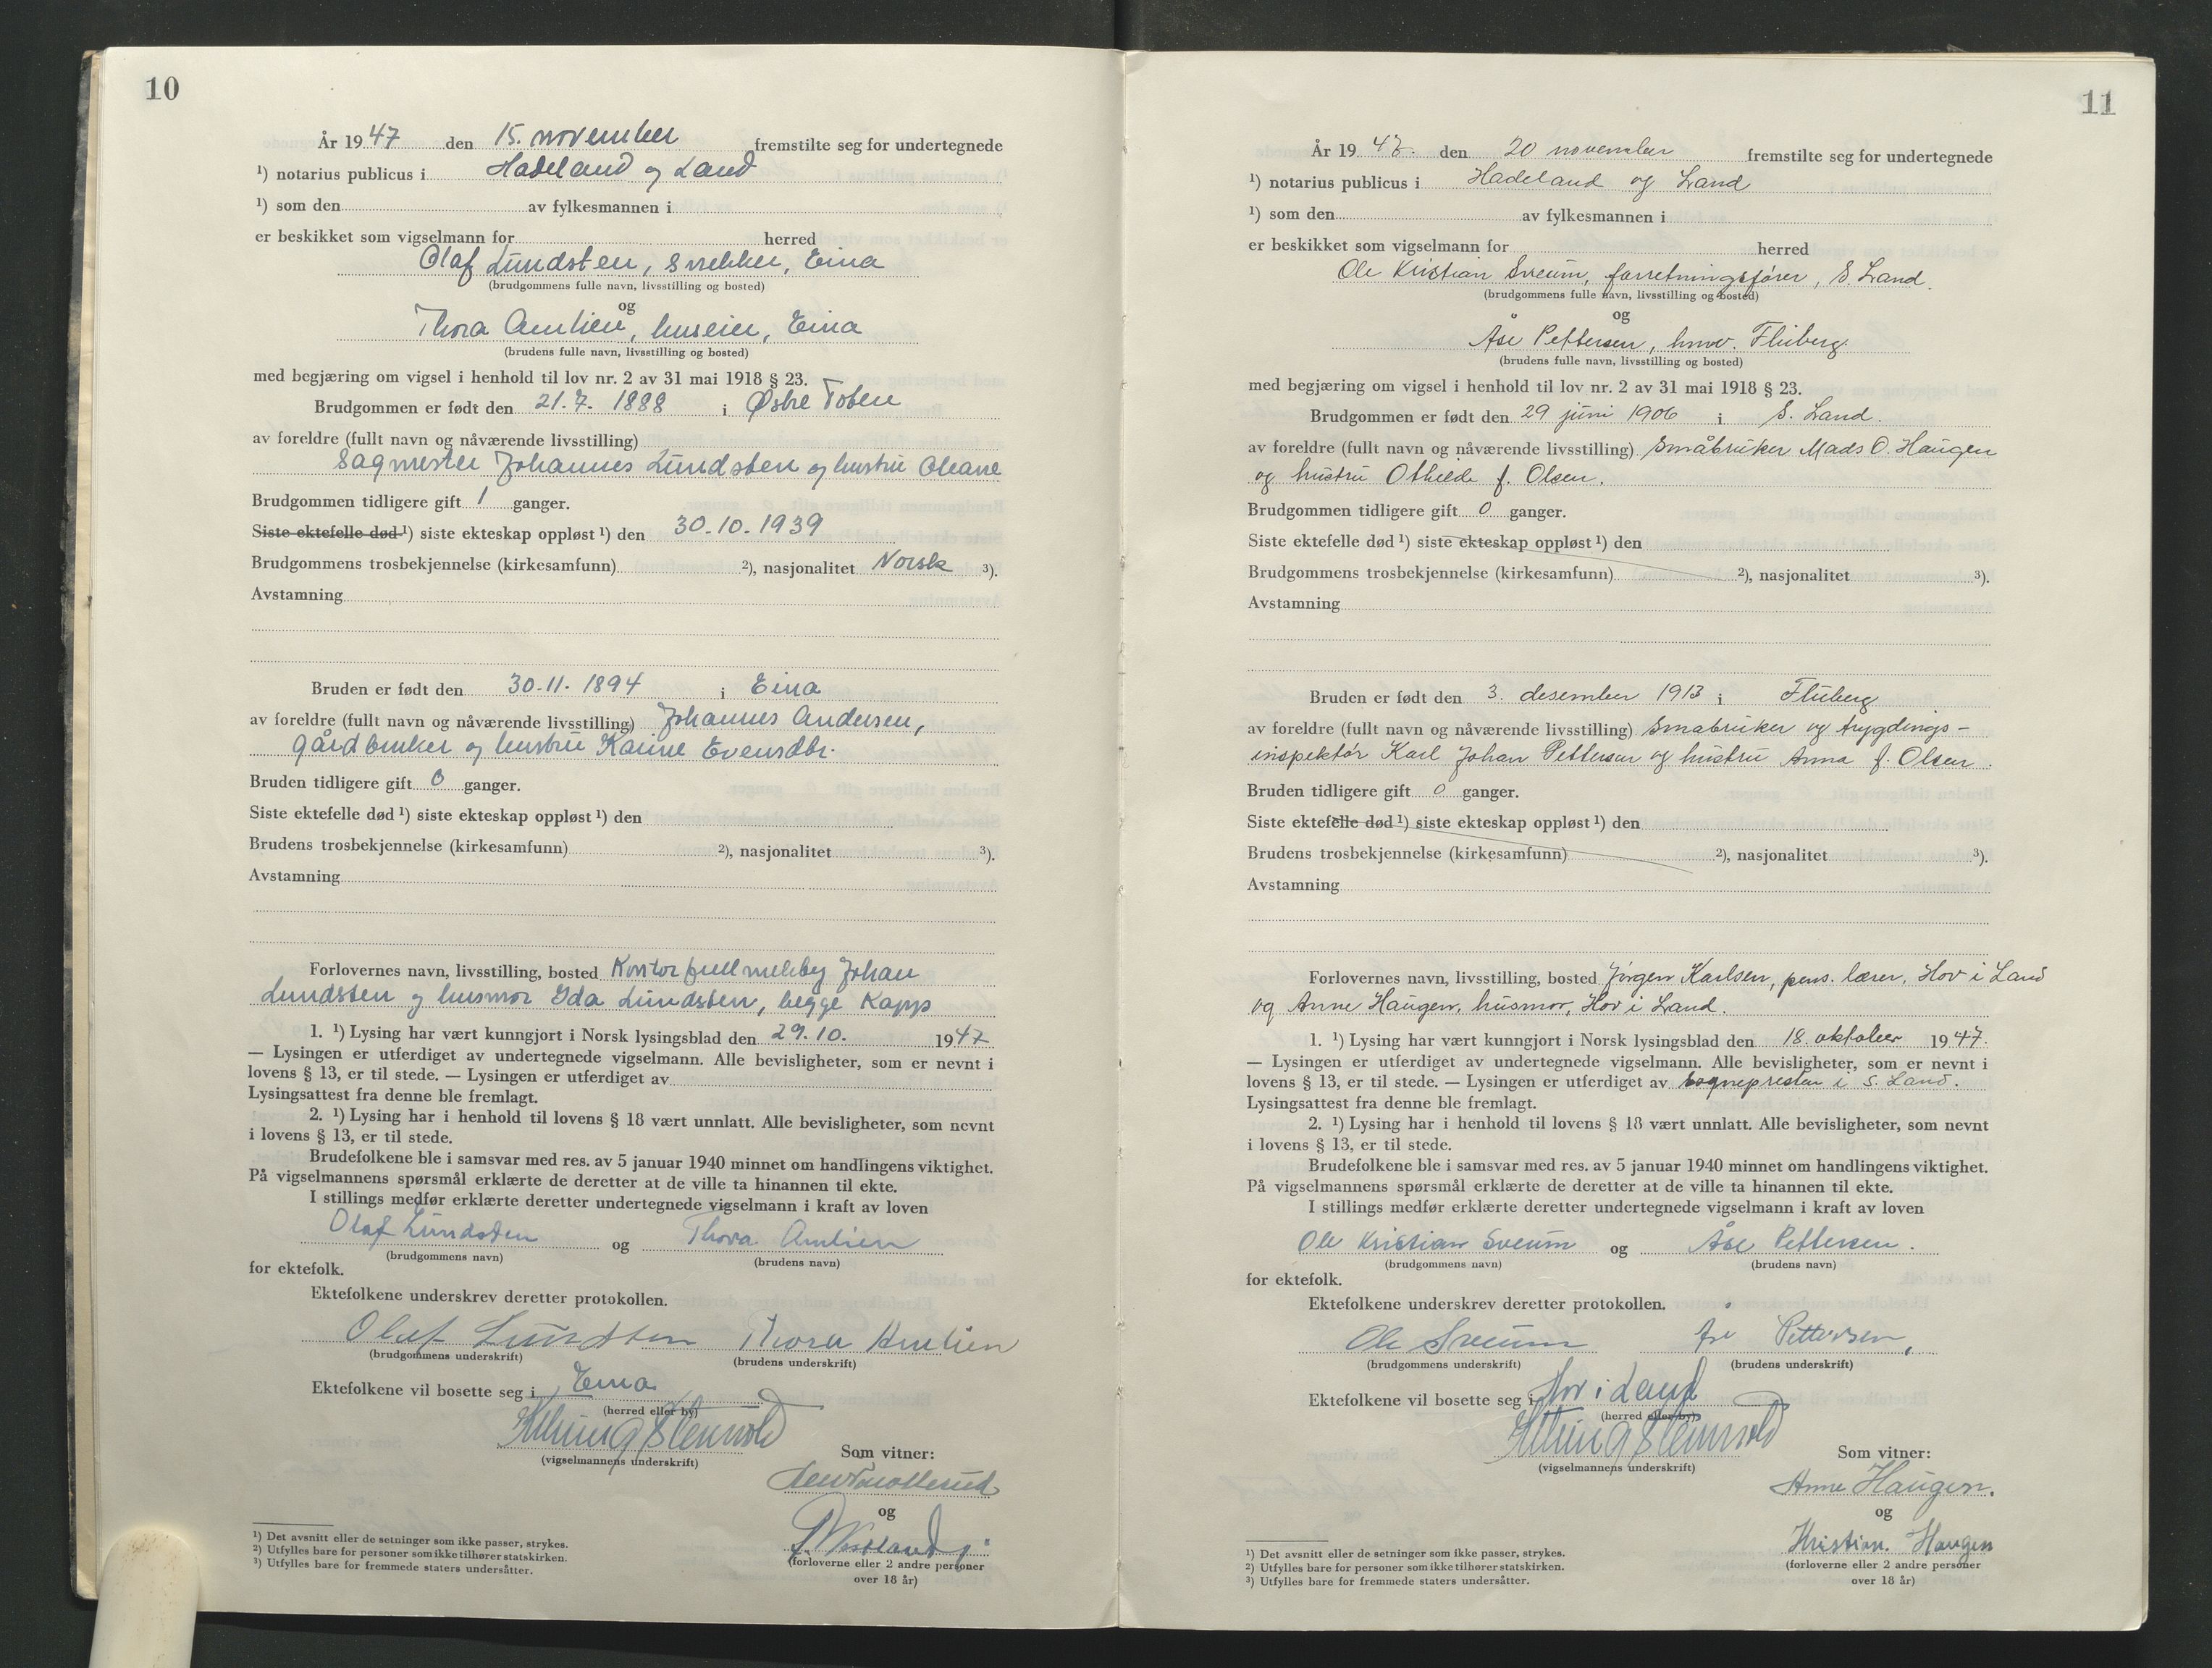 10
År 1947 den 15. november fremstilte seg for undertegnede
¹) notarius publicus i Hadeland og Land
¹) som den av fylkesmannen i
er beskikket som vigselmann for herred
Olaf Lundsten, snekker, Eina
(brudgommens fulle navn, livsstilling og bosted)
og
Thora Amlien, huseier, Eina
(brudens fulle navn, livsstilling og bosted)
med begjæring om vigsel i henhold til lov nr. 2 av 31 mai 1918 § 23.
Brudgommen er født den 21.7. 1888 i Østre Toten
av foreldre (fullt navn og nåværende livsstilling)
Sagmester Johannes Lundsten og hustru Oleane
Brudgommen tidligere gift 1 ganger.
Siste ektefelle død ¹) siste ekteskap oppløst ¹) den 30.10.1939
Brudgommens trosbekjennelse (kirkesamfunn) ²), nasjonalitet Norsk ³).
Avstamning
Bruden er født den 30.11. 1894 i Eina
av foreldre (fullt navn og nåværende livsstilling) Johannes Andersen,
gårdbruker og hustru Karine Evensdtr.
Bruden tidligere gift 0 ganger.
Siste ektefelle død ¹) siste ekteskap oppløst ¹) den
Brudens trosbekjennelse (kirkesamfunn) ²), nasjonalitet ³).
Avstamning
Forlovernes navn, livsstilling, bosted Kontorfullmektig Johan
Lundsten og husmor Ida Lundsten, begge Kapp
1. ¹) Lysing har vært kunngjort i Norsk lysingsblad den 29.10. 1947
— Lysingen er utferdiget av undertegnede vigselmann. Alle bevisligheter, som er nevnt i
lovens § 13, er til stede. — Lysingen er utferdiget av
Lysingsattest fra denne ble fremlagt.
2. ¹) Lysing har i henhold til lovens § 18 vært unnlatt. Alle bevisligheter, som nevnt
i lovens § 13, er til stede.
Brudefolkene ble i samsvar med res. av 5 januar 1940 minnet om handlingens viktighet.
På vigselmannens spørsmål erklærte de deretter at de ville ta hinannen til ekte.
I stillings medfør erklærte deretter undertegnede vigselmann i kraft av loven
Olaf Lundsten og Thora Amlien
(brudgommens navn) (brudens navn)
for ektefolk.
Ektefolkene underskrev deretter protokollen.
Olaf Lundsten Thora Amlien
(brudgommens underskrift) (brudens underskrift)
Ektefolkene vil bosette seg i Eina
(herred eller by)
(vigselmannens underskrift)
Som vitner:
og
(forloverne eller 2 andre personer
over 18 år)
¹) Det avsnitt eller de setninger som ikke passer, strykes.
²) Utfylles bare for personer som ikke tilhører statskirken.
³) Utfylles bare for fremmede staters undersåtter.
11
År 1947. den 20 november fremstilte seg for undertegnede
¹) notarius publicus i Hadeland og Land
¹) som den av fylkesmannen i
er beskikket som vigselmann for herred
Ole Kristian Sveum, forretningsfører, S. Land.
(brudgommens fulle navn, livsstilling og bosted)
og
Åse Pettersen, husv. Fluberg.
(brudens fulle navn, livsstilling og bosted)
med begjæring om vigsel i henhold til lov nr. 2 av 31 mai 1918 § 23.
Brudgommen er født den 29 juni 1906 i S. Land.
av foreldre (fullt navn og nåværende livsstilling) småbruker Mads O. Haugen
og hustru Othilde f. Olsen.
Brudgommen tidligere gift 0 ganger.
Siste ektefelle død ¹) siste ekteskap oppløst ¹) den
Brudgommens trosbekjennelse (kirkesamfunn) ²), nasjonalitet ³).
Avstamning
Bruden er født den 3. desember 1913 i Fluberg
av foreldre (fullt navn og nåværende livsstilling) småbruker og trygdings-
inspektør Karl Johan Pettersen og hustru Anna f. Olsen.
Bruden tidligere gift 0 ganger.
Siste ektefelle død ¹) siste ekteskap oppløst ¹) den
Brudens trosbekjennelse (kirkesamfunn) ²), nasjonalitet ³).
Avstamning
Forlovernes navn, livsstilling, bosted Jörgen Karlsen, pens. lærer, Hov i Land
og Anne Haugen, husmor, Hov i Land.
1. ¹) Lysing har vært kunngjort i Norsk lysingsblad den 18. oktober 1947.
— Lysingen er utferdiget av undertegnede vigselmann. Alle bevisligheter, som er nevnt i
lovens § 13, er til stede. — Lysingen er utferdiget av sognepresten i S. Land.
Lysingsattest fra denne ble fremlagt.
2. ¹) Lysing har i henhold til lovens § 18 vært unnlatt. Alle bevisligheter, som nevnt
i lovens § 13, er til stede.
Brudefolkene ble i samsvar med res. av 5 januar 1940 minnet om handlingens viktighet.
På vigselmannens spørsmål erklærte de deretter at de ville ta hinannen til ekte.
I stillings medfør erklærte deretter undertegnede vigselmann i kraft av loven
Ole Kristian Sveum og Åse Pettersen.
(brudgommens navn) (brudens navn)
for ektefolk.
Ektefolkene underskrev deretter protokollen.
Ole Sveum Åse Pettersen,
(brudgommens underskrift) (brudens underskrift)
Ektefolkene vil bosette seg i Hov i Land
(herred eller by)
(vigselmannens underskrift)
Som vitner:
Anne Haugen.
og
Kristian Haugen
(forloverne eller 2 andre personer
over 18 år)
¹) Det avsnitt eller de setninger som ikke passer, strykes.
²) Utfylles bare for personer som ikke tilhører statskirken.
³) Utfylles bare for fremmede staters undersåtter.